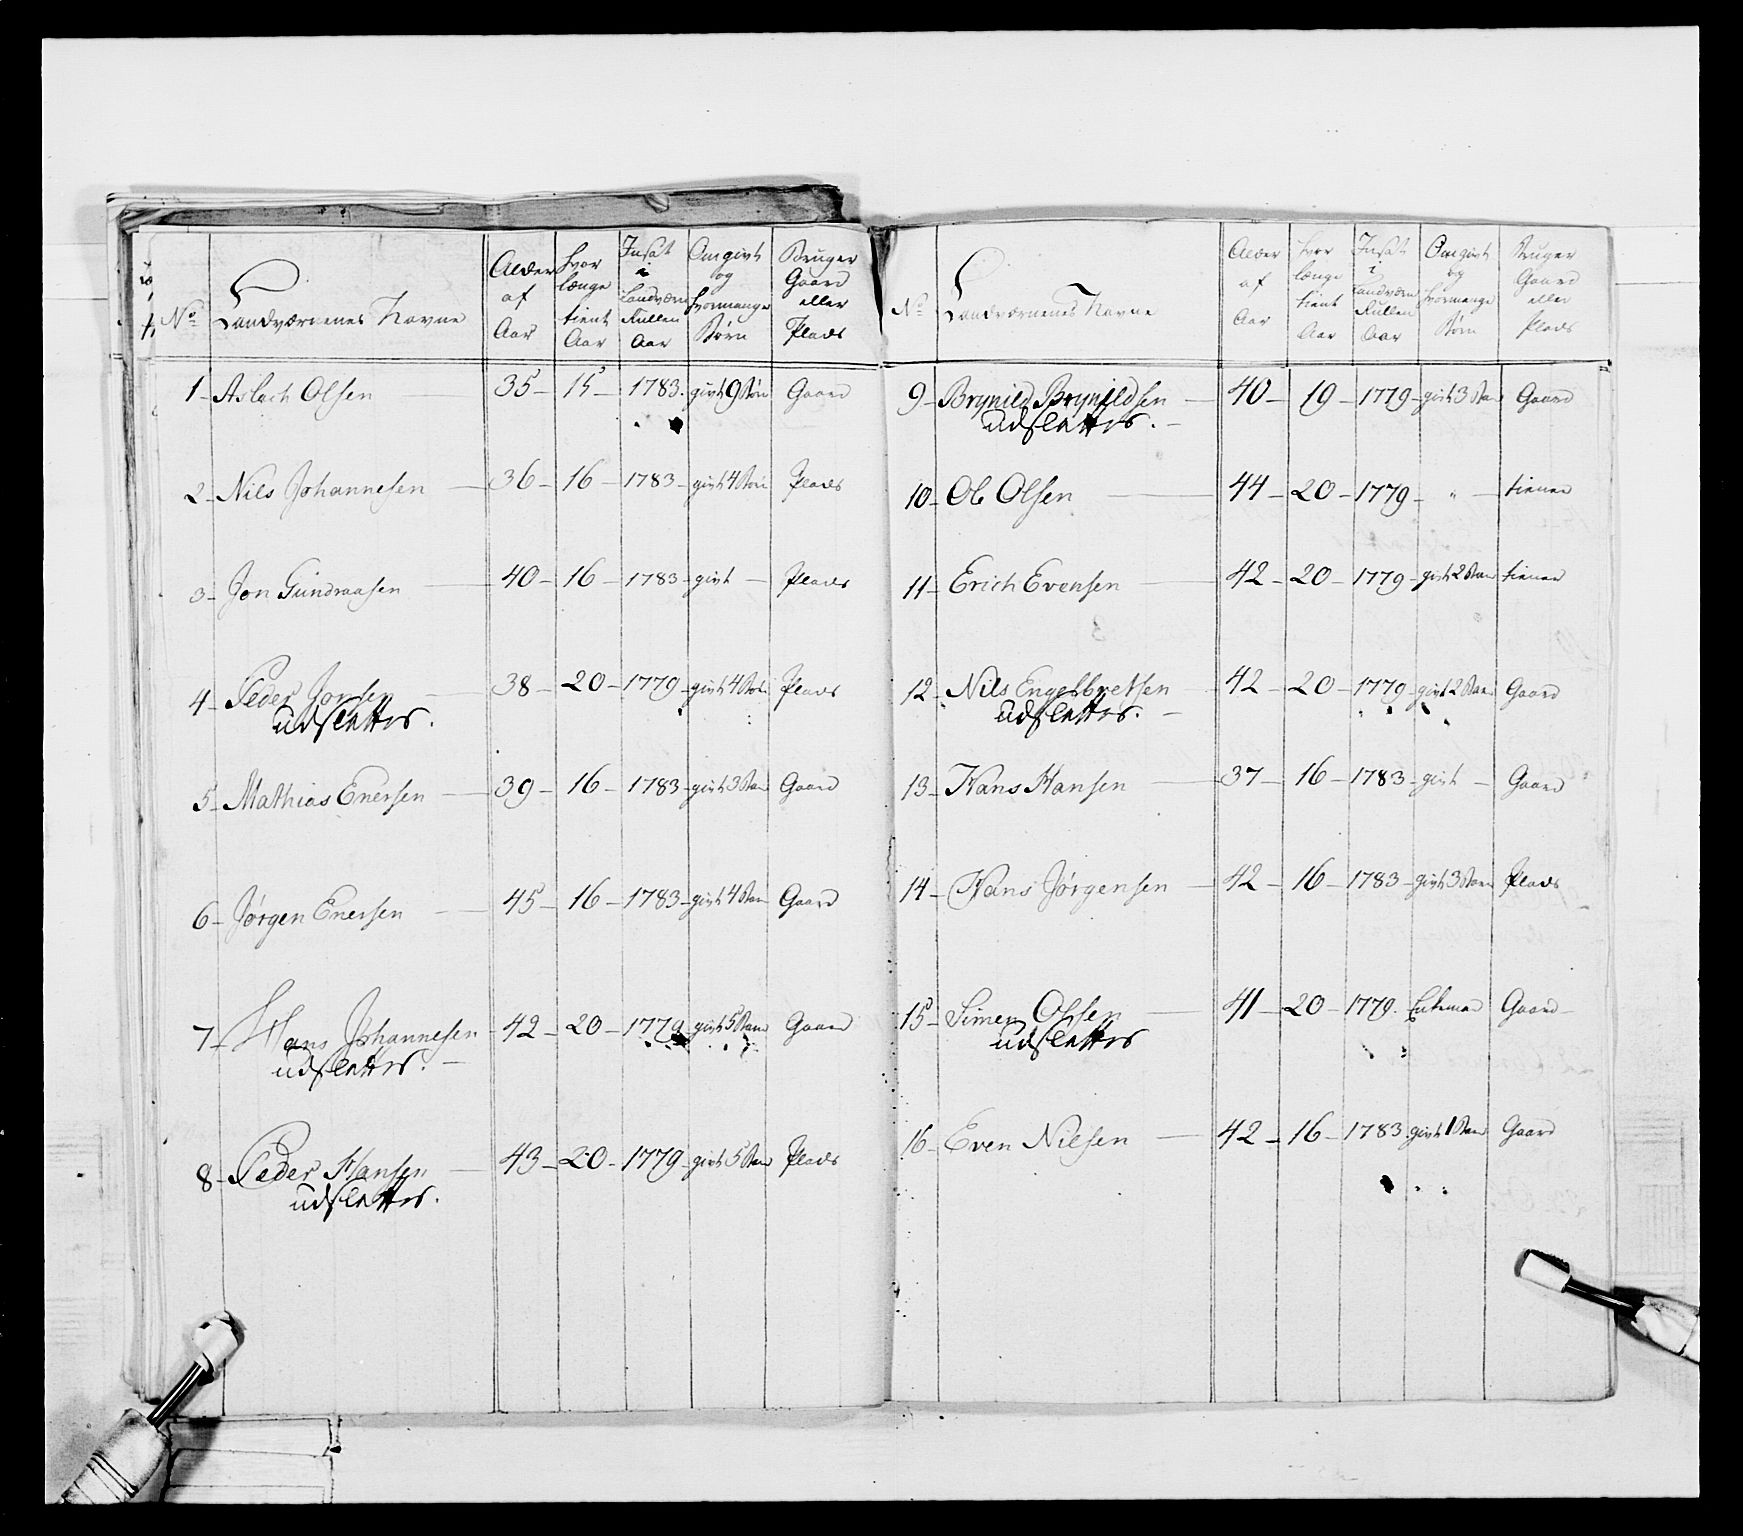 No
Landværnenes Navne
Alder af Aar
hvor længe tient Aar
Indsat i Landværn Rullen Aar
Om givt og hvormange Børn
Bruger Gaard eller Plads
1 - Aslach Olsen 35 - 15 - 1783. givt 9 Børn Gaard
2 - Nils Johannesen - 36 - 16 - 1783 - givt 4 Børn Plads
3 - Jon Gundraasen - 40 - 16 - 1783 - givt - Plads
4 - Peder Jonsen - 38 - 20 - 1779 - givt 4 Børn Plads
udslettes.
5 - Mathias Enersen - 39 - 16 - 1783 - givt 3 Børn Gaard
6 - Jørgen Enersen - 45 - 16 - 1783 - givt 4 Børn Gaard
7 - Hans Johannesen - 42 - 20 - 1779 - givt 5 Børn Gaard
udslettes. -
8 - Peder Hansen - 43 - 20 - 1779 - givt 5 Børn Plads
udslettes.
No
Landværnenes Navne
Alder af Aar
hvor længe tient Aar
Indsat i Landværn Rullen Aar
Om givt og hvormange Børn
Bruger Gaard eller Plads
9 - Brynild Brynildsen - 40 - 19 - 1779 - givt 3 Børn Gaard
udslettes. -
10 - Ole Olsen - 44 - 20 - 1779 - " - tiener
11 - Erich Evensen - 42 - 20 - 1779 - givt 2 Børn tiener
12 - Nils Engelbretsen - 42 - 20 - 1779 - givt 2 Børn Gaard
udslettes. -
13 - Hans Hansen - 37 - 16 - 1783 - givt - Gaard
14 - Hans Jørgensen - 42 - 16 - 1783 - givt 3 Børn Plads
15 - Simen Olsen - 41 - 20 - 1779. Enkemand Gaard -
udslettes
16 - Even Nilsen - 42 - 16 - 1783. givt 1 Børn Gaard